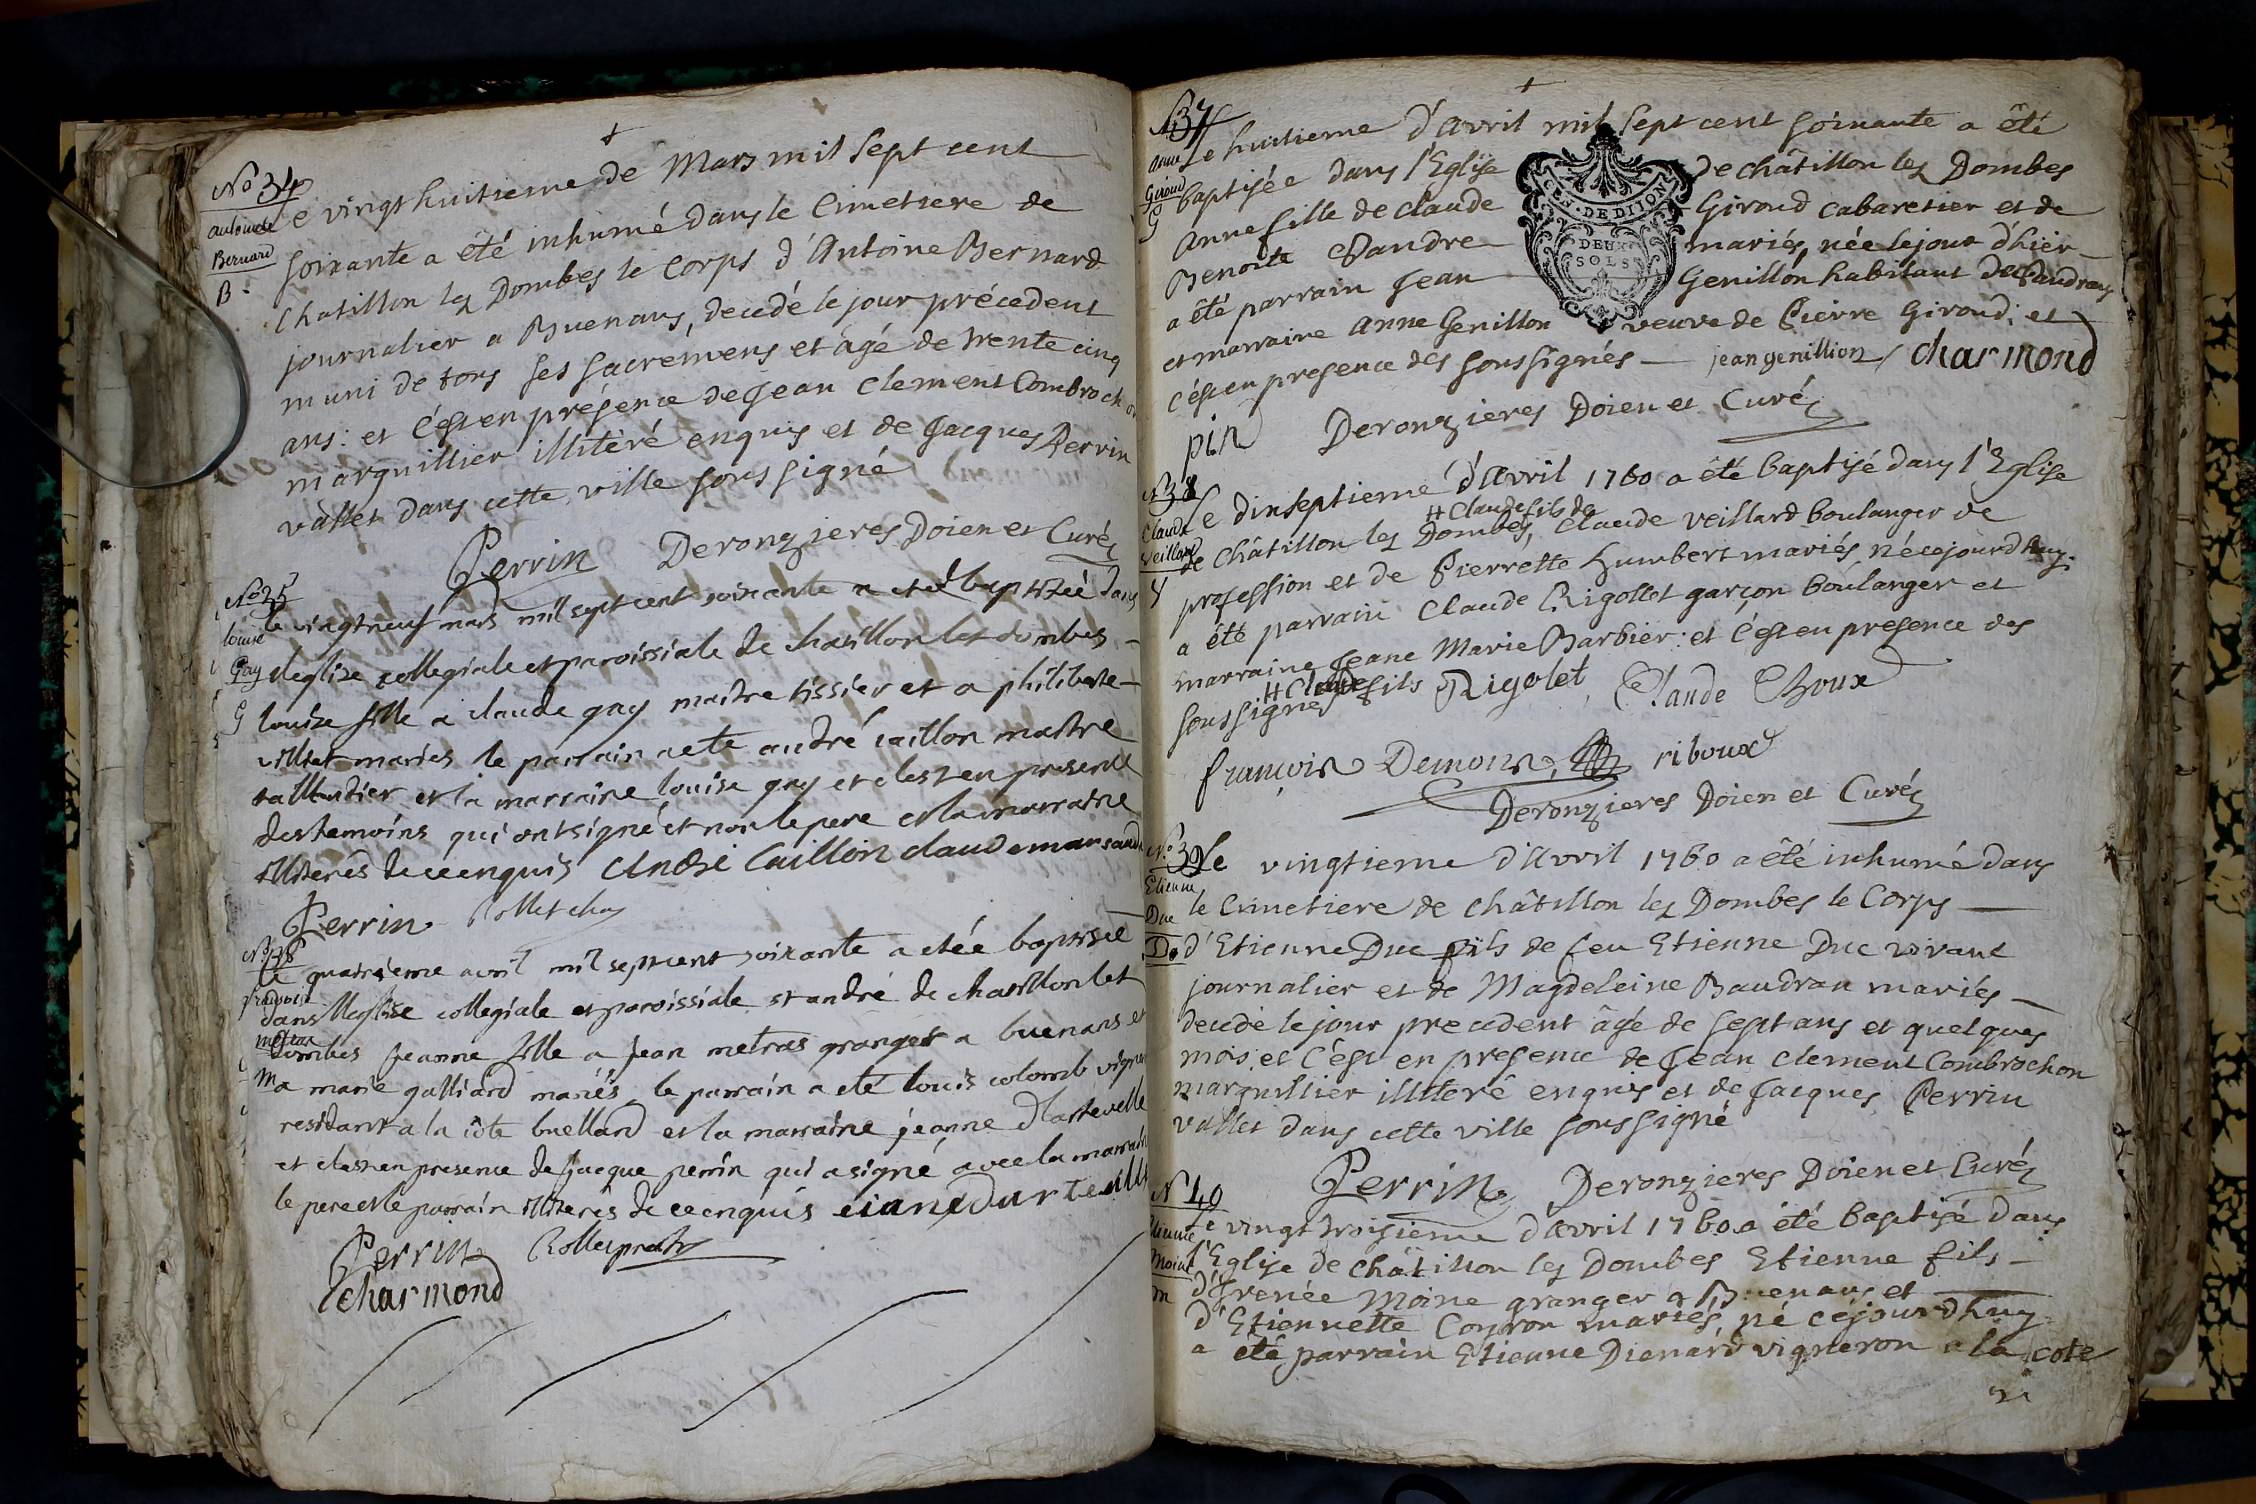 No 34
antoinete
Bernard
B.
Le vingt huitieme de Mars mil sept cent
soixante a été inhumé dans le Cimetiere de
Chatillon les Dombes le Corps d'Antoine Bernard
journalier a Buenans, decedé le jour précedent
muni de tous ses sacremens et âgé de trente cinq
ans: et c'est en présence de Jean Clement Combrochon
marguillier illitéré enquis et de Jacques Perrin
vallet dans cette ville soussigné
Perrin Deronzieres Doien et Curé
No 35
louise
Gay
G
le vingtneuf mars mil sept cent soixante a eté baptizée dans
leglize collegiale et paroissiale de chatillon les dombes
louise fille a claude gay maitre tissier et a philiberte
villiet mariés le parrain a ete andré caillon maitre
taillandier et la marraine louise gay et c'est en presence
des temoins qui ont signé et non le pere et la marraine
illiterés de ce enquis André Caillon claude marsand
Perrin Rollet
No 36
m
le quatrieme avril mil sept cent soixante a etée baptisée
dans lleglise collegiale et paroissiale st andré de chatillon les
dombes jeanne fille a jean metras granger a buenans et
a marie galliard mariés le parrain a eté louis colomb vigneron
residant a la côte buelland et la marraine jeanne dhartevelle
et c'est en presence de jacque perrin qui a signé avec la marraine
le pere et le parrain illiterés de ce enquis
Perrin Rollet
charmond
N 37
Anne
Giroud
G
Le huitieme d'avril mil sept cent soixante a été
baptisée dans l'Eglise de châtillon les Dombes
Anne fille de claude Giroud cabaretier et de
Benoite Baudre mariés, née le jour d'hier
a été parrain Jean Genillon habitant de Baudran
et marraine Anne Genillon veuve de Pierre Giroud: et
c'est en presence des soussignés jean genillion charmond
GEN. DE DIJON
DEUX
SOLS
pin Deronzieres Doien et Curé
N 38
Claude
Veillard
V
Le dixseptieme d'Avril 1760 a été baptisé dans l'Eglise
H Claude fils de
de châtillon les Dombes, Claude veillard boulanger de
profession et de Pierrette humbert mariés né cejourdhuy.
a été parrain Claude Rigollet garçon boulanger et
marraine Jeane Marie Barbier: et c'est en presence des
H Claude fils Rigolet Claude Choux
soussignés
françois Demons riboux
Deronzieres Doien et Curé
N.o 39
Etienne
Duc
D
Le vingtieme d'Avril 1760 a été inhumé dans
le Cimetiere de châtillon les Dombes le Corps
d'Etienne Duc fils de feu Etienne Duc vivant
journalier et de Magdeleine Baudran mariés
decedé le jour precedent âgé de sept ans et quelques
mois: et c'est en presence de Jean Clement Combrochon
marguillier illiteré enquis et de Jacques Perrin
vallet dans cette ville soussigné
Perrin Deronzieres Doien et Curé
N 40
Etienne
Moine
m
Le vingt troisieme d'Avril 1760 a été baptisé dans
l'Eglise de châtillon les Dombes Etienne fils
d'Irenée Moine granger a Buenans et
d'Etiennette Conron mariés, né cejourdhuy
a été parrain Etienne Dienard vigneron a la cote